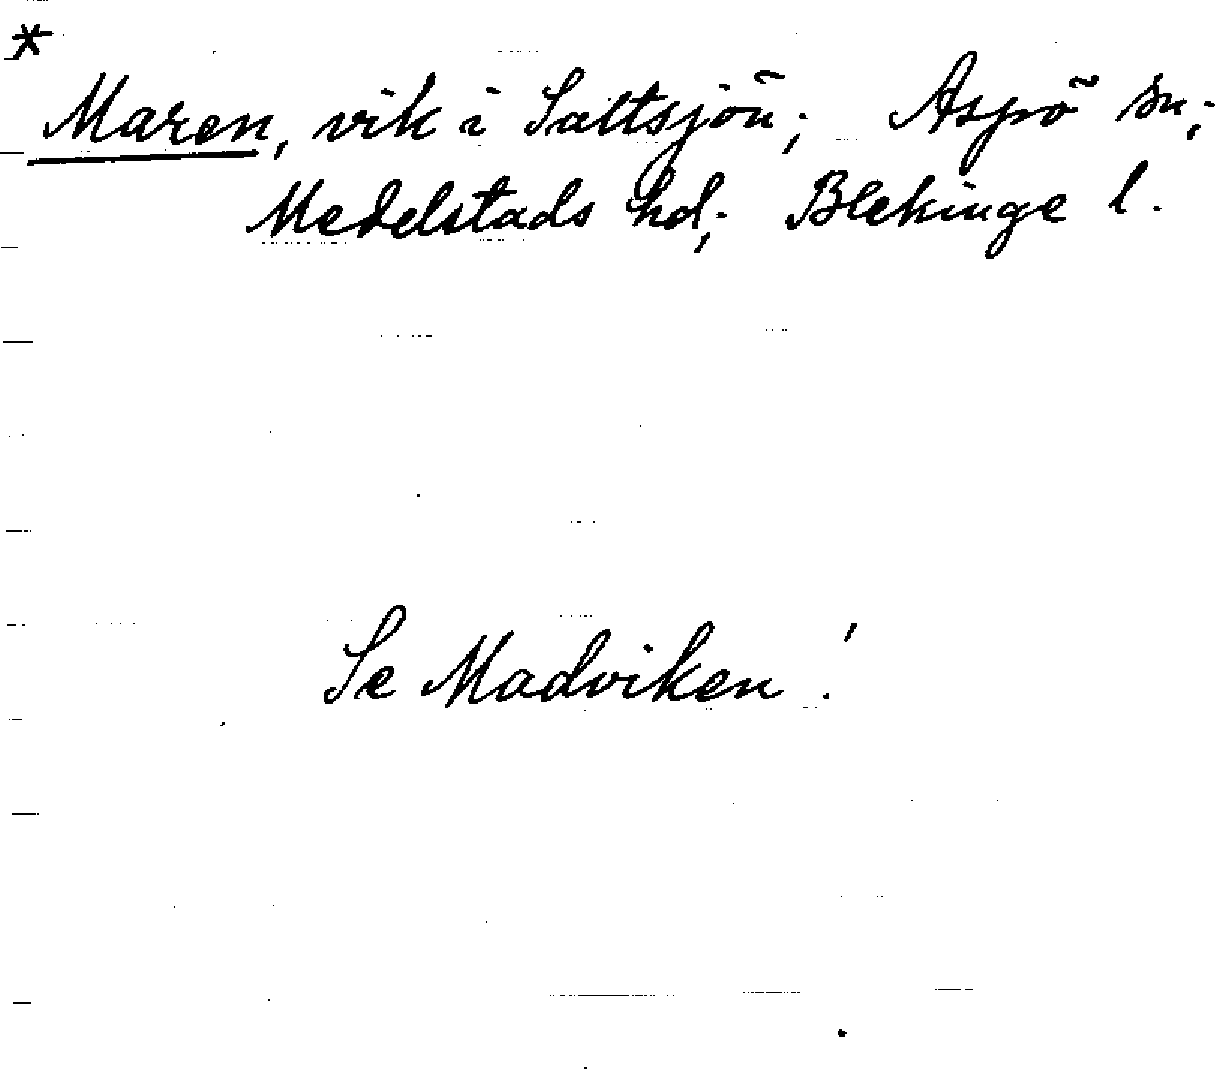 *
Maren, vik i Saltsjön; Aspö sn;
Medelstads hd; Blekinge l.
Se Madviken!